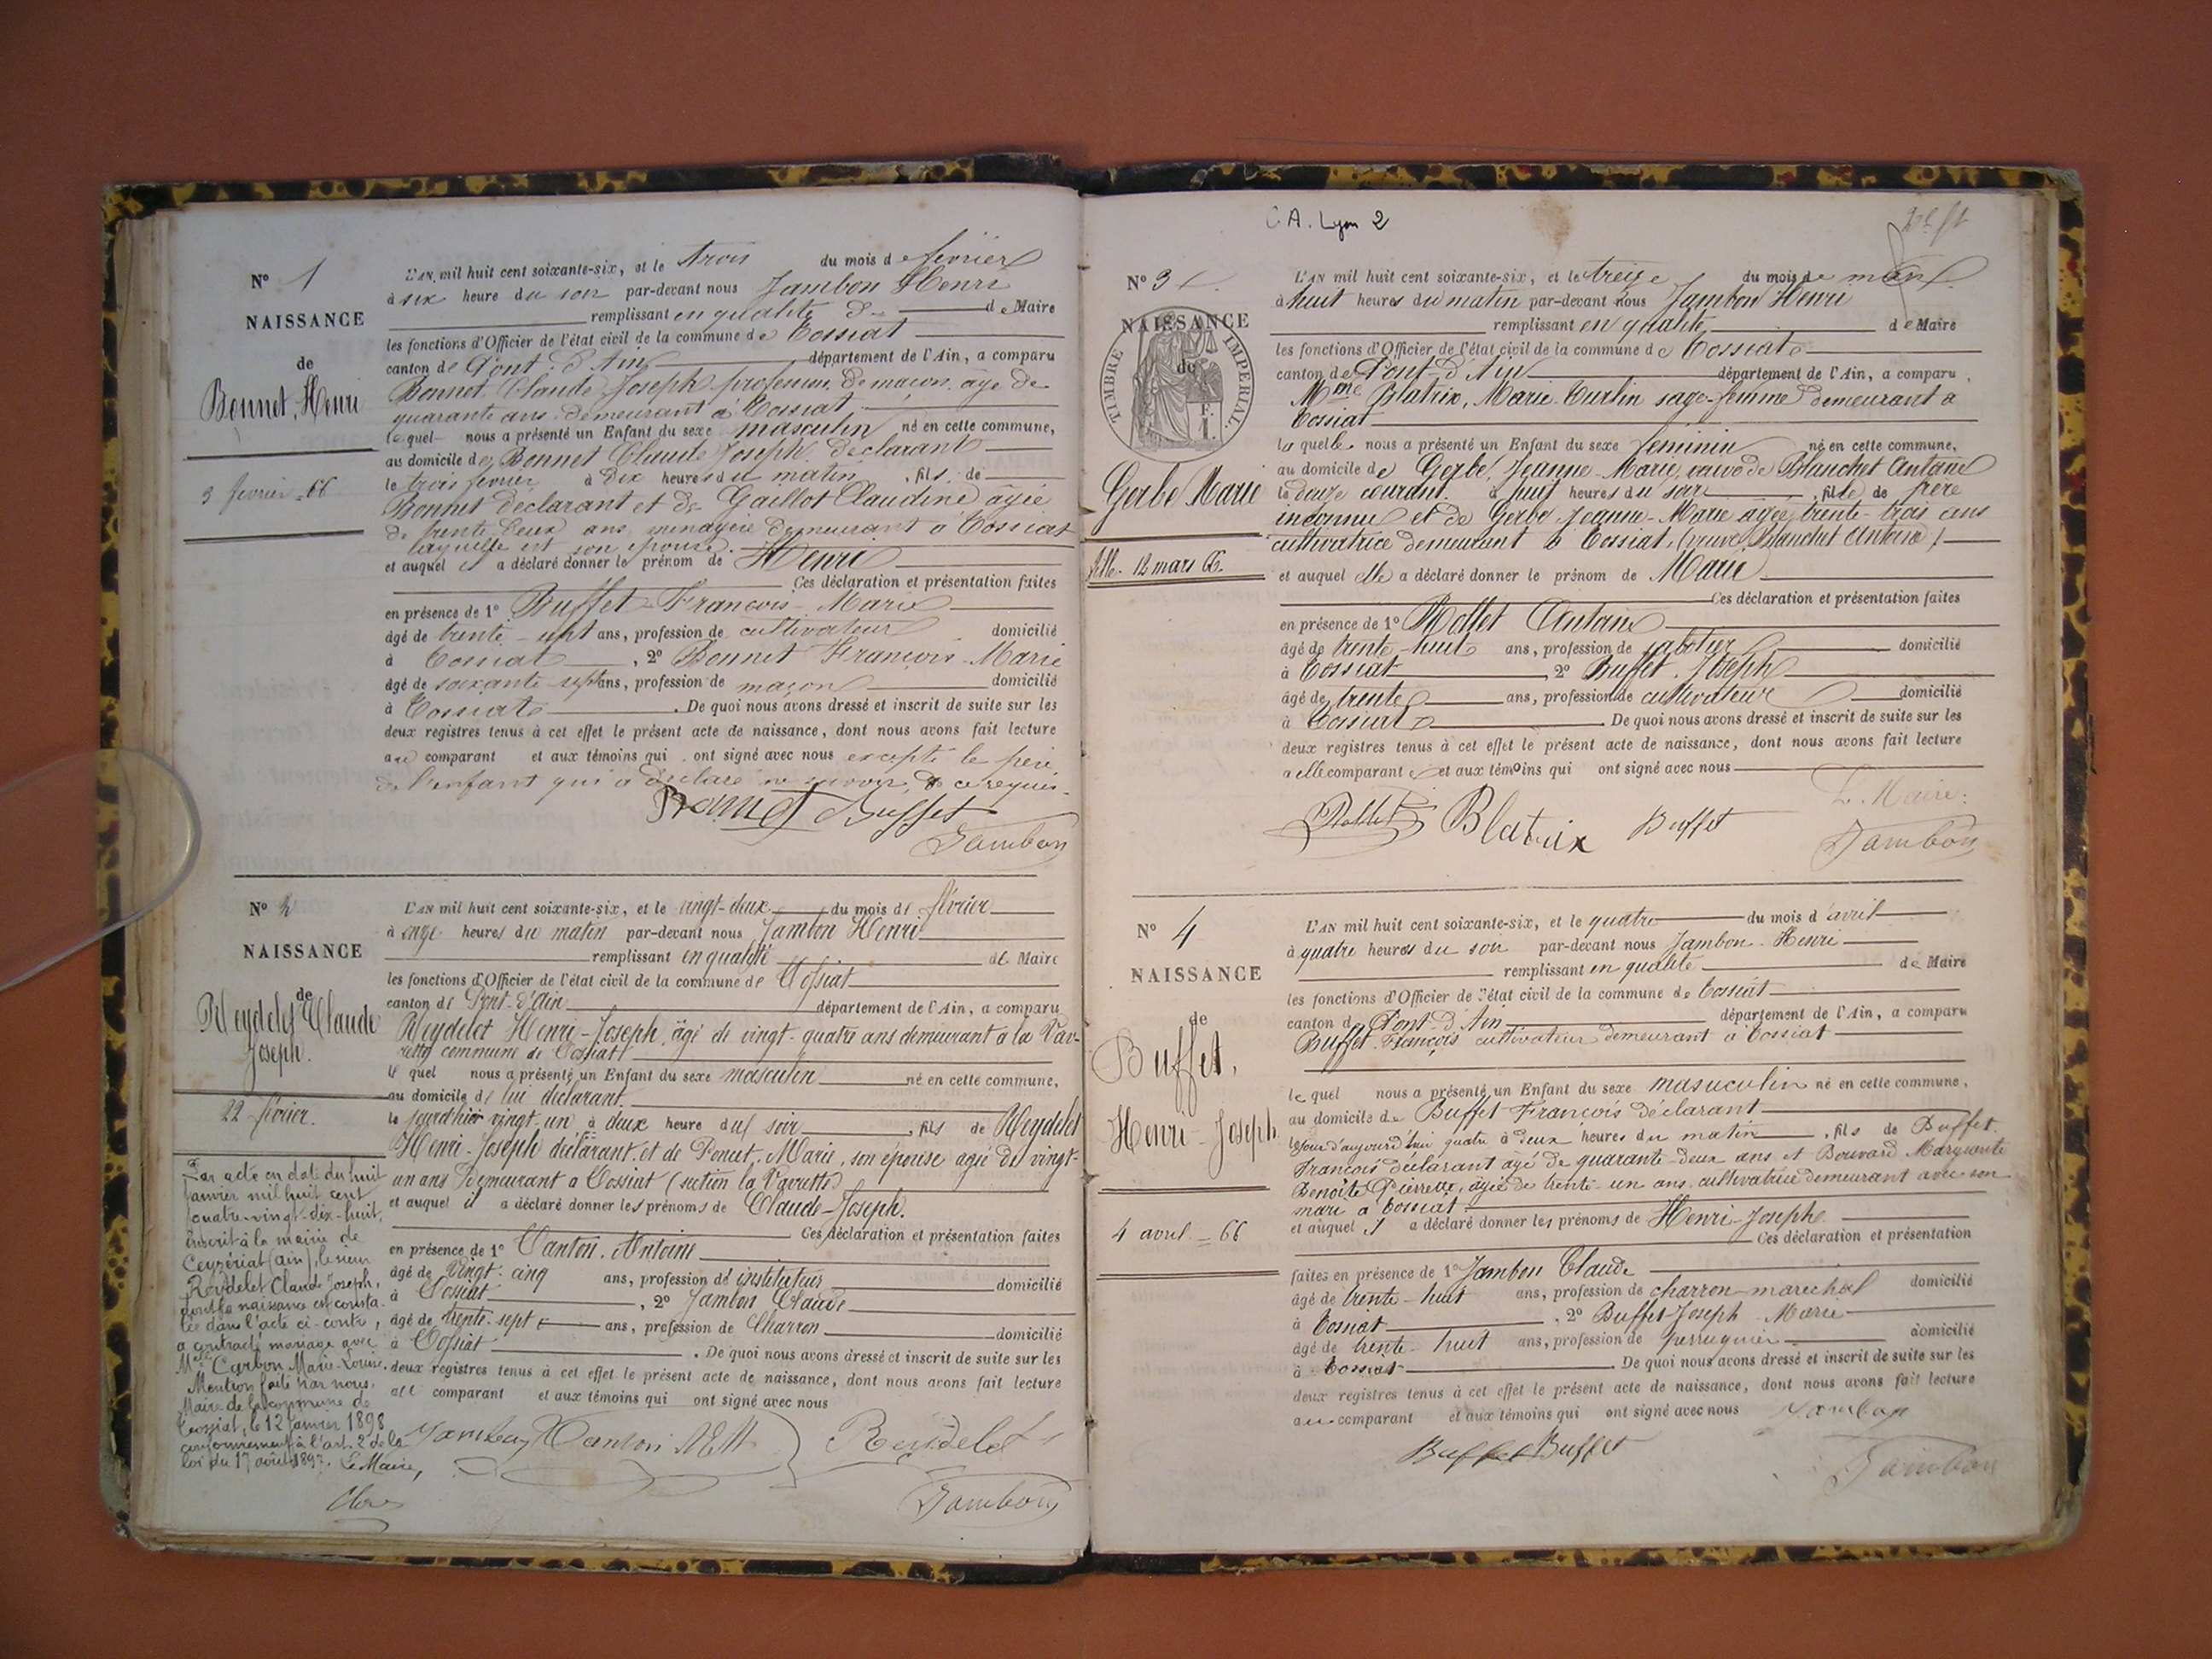 N° 1
NAISSANCE
de
Bonnet, Henri
3 février = 66
L'AN mil huit cent soixante-six, et le trois du mois de février
à six heure du soir par-devant nous Jambon Henri
remplissant en qualité de Maire
les fonctions d'Officier de l'état civil de la commune de Tossiat
canton de Pont-d'Ain département de l'Ain, a comparu
Bonnet Claude Joseph profession de maçon âgé de
quarante ans demeurant à Tossiat
lequel nous a présenté un Enfant du sexe masculin né en cette commune,
au domicile de Bonnet Claude Joseph déclarant
le trois février à dix heures du matin, fils de
Bonnet déclarant et de Gaillot Claudine âgée
de trente deux ans ménagère demeurant à Tossiat
laquelle est son épouse.
et auquel il a déclaré donner le prénom de Henri
Ces déclaration et présentation faites
en présence de 1° Buffet François-Marie
âgé de trente-sept ans, profession de cultivateur domicilié
à Tossiat, 2° Bonnet François-Marie
âgé de soixante-sept ans, profession de maçon domicilié
à Tossiat. De quoi nous avons dressé et inscrit de suite sur les
deux registres tenus à cet effet le présent acte de naissance, dont nous avons fait lecture
au comparant et aux témoins qui ont signé avec nous excepté le père
de l'enfant qui a déclaré ne savoir de ce requis.
Bonnet Buffet
Jambon
N° 2
NAISSANCE
de
Reydelet Claude
Joseph.
22 février.
Par acte en date du huit
janvier mil huit cent
quatre-vingt-dix-huit,
inscrit à la mairie de
Ceyzériat (Ain), le sieur
Reydelet Claude Joseph,
dont la naissance est consta-
tée dans l'acte ci-contre,
a contracté mariage avec
Mlle Carbon Marie-Louise.
Mention faite par nous,
Maire de la commune de
Tossiat, le 12 janvier 1898
conformément à l'art. 2 de la
loi du 17 août 1897. Le Maire,
L'AN mil huit cent soixante-six, et le vingt-deux du mois de février
à onze heures du matin par-devant nous Jambon Henri
remplissant en qualité de Maire
les fonctions d'Officier de l'état civil de la commune de Tossiat
canton de Pont-d'Ain département de l'Ain, a comparu
Reydelet Henri-Joseph, âgé de vingt-quatre ans demeurant à la Vav-
rette commune de Tossiat
le quel nous a présenté un Enfant du sexe masculin né en cette commune,
au domicile de lui déclarant
le jourdhier vingt-un à deux heure du soir, fils de Reydelet
Henri-Joseph déclarant, et de Poncet, Marie, son épouse agée de vingt-
un ans Demeurant a Tossiat (section la Vavrette)
et auquel il a déclaré donner les prénoms de Claude-Joseph.
Ces déclaration et présentation faites
en présence de 1° Canton. Antoine
âgé de vingt-cinq ans, profession de instituteur domicilié
à Tossiat, 2° Jambon Claude
âgé de trente-sept ans, profession de Charron domicilié
à Tossiat. De quoi nous avons dressé et inscrit de suite sur les
deux registres tenus à cet effet le présent acte de naissance, dont nous avons fait lecture
au comparant et aux témoins qui ont signé avec nous
Jambon Canton Reydelet
Jambon
C A. Lyon 2
N° 3
TIMBRE IMPERIAL
NAISSANCE
de
Gerbe Marie
fille. 12 mars 66.
L'AN mil huit cent soixante-six, et le treize du mois de mars
à huit heures du matin par-devant nous Jambon Henri
remplissant en qualité de Maire
les fonctions d'Officier de l'état civil de la commune de Tossiat
canton de Pont-d'Ain département de l'Ain, a comparu
Mme Blatrix, Marie Curtin sage-femme demeurant a
Tossiat
la quelle nous a présenté un Enfant du sexe féminin né en cette commune,
au domicile de Gerbe, Jeanne-Marie, veuve de Blanchet Antoine
le douze courant à huit heures du soir, fille de père
inconnu et de Gerbe Jeanne-Marie agée trente-trois ans
cultivatrice demeurant à Tossiat, (veuve Blanchet Antoine)
et auquel elle a déclaré donner le prénom de Marie
Ces déclaration et présentation faites
en présence de 1° Rollet Antoine
âgé de trente-huit ans, profession de sabotier domicilié
à Tossiat, 2° Buffet. Joseph
âgé de trente ans, profession de cultivateur domicilié
à Tossiat. De quoi nous avons dressé et inscrit de suite sur les
deux registres tenus à cet effet le présent acte de naissance, dont nous avons fait lecture
a elle comparante et aux témoins qui ont signé avec nous
Le Maire:
Rollet Blatrix Buffet Jambon
N° 4
NAISSANCE
de
Buffet,
Henri-Joseph
4 avril = 66
L'AN mil huit cent soixante-six, et le quatre du mois d'avril
à quatre heures du soir par-devant nous Jambon Henri
remplissant en qualité de Maire
les fonctions d'Officier de l'état civil de la commune de Tossiat
canton de Pont-d'Ain département de l'Ain, a comparu
Buffet François cultivateur demeurant à Tossiat
le quel nous a présenté un Enfant du sexe masuculin né en cette commune,
au domicile de Buffet François déclarant
le jour d'aujourd'hui quatre à deux heures du matin, fils de Buffet
François déclarant âgé de quarante-deux ans et Bouvard Marguerite
Benoîte Pierrette, âgée de trente-un ans cultivatrice demeurant avec son
mari à Tossiat
et auquel il a déclaré donner les prénoms de Henri-Joseph
Ces déclaration et présentation
faites en présence de 1° Jambon Claude
âgé de trente-huit ans, profession de charron-marechal domicilié
à Tossiat, 2° Buffet Joseph Marie
âgé de trente-huit ans, profession de perruquier domicilié
à Tossiat. De quoi nous avons dressé et inscrit de suite sur les
deux registres tenus à cet effet le présent acte de naissance, dont nous avons fait lecture
au comparant et aux témoins qui ont signé avec nous Jambon
Buffet Buffet
Jambon